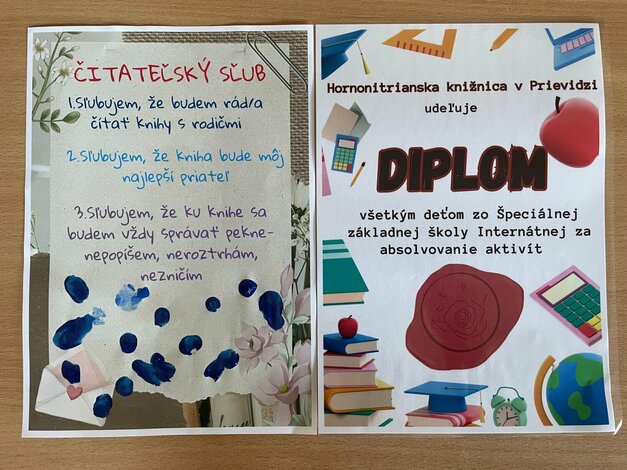 ČITATEĽSKÝ SĽUB
1.Sľubujem, že budem rád/a
čítať knihy s rodičmi
2.Sľubujem, že kniha bude môj
najlepší priateľ
3.Sľubujem, že ku knihe sa
budem vždy správať pekne-
nepopíšem, neroztrhám,
nezničím
Hornonitrianska knižnica v Prievidzi
udeľuje
DIPLOM
všetkým deťom zo Špeciálnej
základnej školy Internátnej za
absolvovanie aktivít